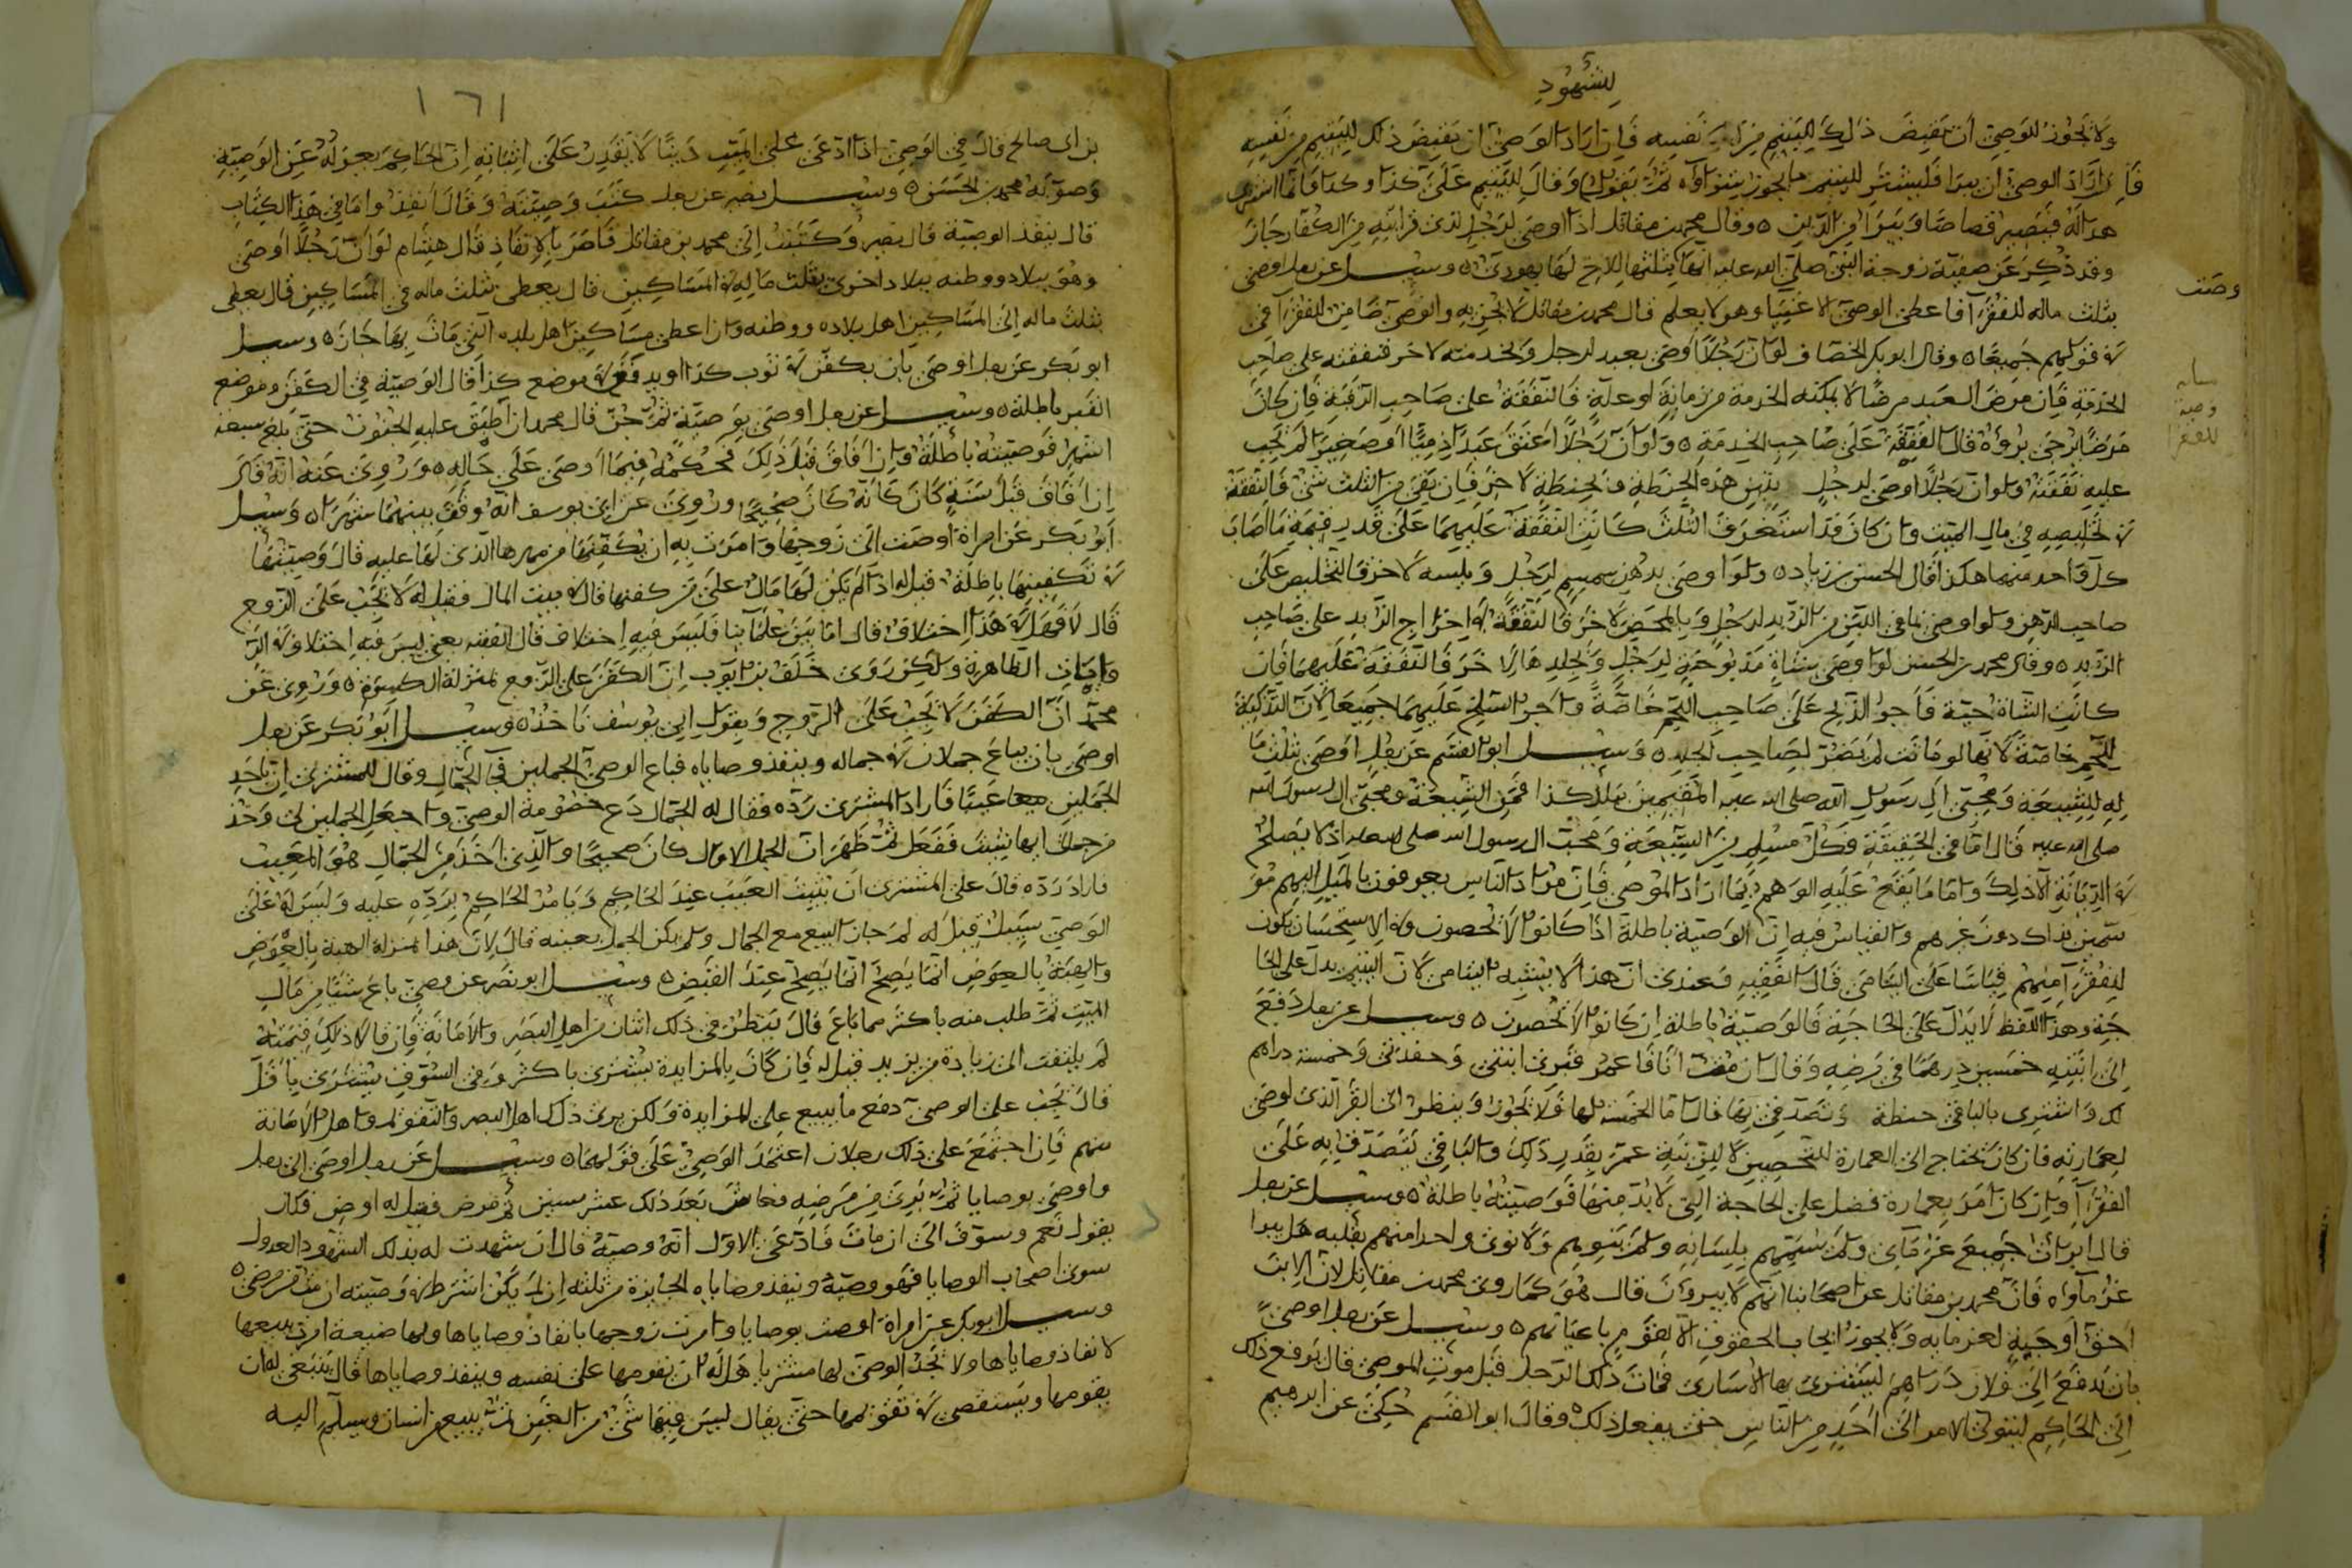 للشهود
ولا يجوز للوصي ان يقبض ذلك لليتيم من نفسه فان اراد الوصي ان يقبض ذلك لليتيم من نفسه
فان اراد الوصي ان يبرا فليشتر لليتيم ما يجوز شراؤه ثم يقول وقال لليتيم علي كذا وكذا فانا اشتري
هذا له فيصير قصاصا ويبرا من الدين ٥ وقال محمد بن مقاتل اذا اوصى لرجل لذي قرابته من الكفار جاز
وقد ذكر عن صفية زوجة النبي صلى الله عليه انها بثلثها لاخ لها يهودي ٥ وسئل عن رجل اوصى
وصيت
بثلث ماله للفقرآ فاعطى الوصي الاغنيا وهو لا يعلم قال محمد بن مقاتل لا يجزيه والوصي ضامن للفقرآ في
في قولهم جميعا ٥ وقال ابو بكر الخصاف لو ان رجلا اوصى بعبد لرجل وبخدمته لاخر فنفقته على صاحب
الخدمة فان مرض العبد مرضا لا يمكنه الخدمة من زمانة او علة فالنفقة على صاحب الرقبة فان كان
وصية
للفقرا
مرضا يرجى برؤه قال الفقيه على صاحب الخدمة ٥ ولو ان رجلا اعتق عبدا ذميا او صغيرا لم يجب
عليه نفقته ولو ان رجلا اوصى لرجل بتبن هذه الحنطة وبالحنطة لاخر فان بقي من الثلث شئ فالنفقة
في تخليصه في مال الميت وان كان قد استغرق الثلث كانت النفقة عليهما على قدر قيمة ما اصاب
كل واحد منهما هكذا قال الحسن بن زياد ٥ ولو اوصى بدهن سمسم لرجل وبكسبه لاخر فالتخليص على
صاحب الدهن ولو اوصى بما في اللبن من الزبد لرجل وبالمخيض لاخر فالنفقة في اخراج الزبد على صاحب
الزبد ٥ وقال محمد بن الحسن لو اوصى بشاة مذبوحة لرجل وبجلدها لاخر فالنفقة عليهما فان
كانت الشاة حية فاجر الذبح على صاحب اللحم خاصة واجر السلخ عليهما جميعا لان التذكية
للحم خاصة لانها لو ماتت لم يضر لصاحب الجلد ٥ وسئل ابو القسم عن رجل اوصى بثلث ما
له للشيعة ومحبي آل رسول الله صلى الله عليه المقيمين ببلد كذا فمن الشيعة ومحبي آل رسول الله
صلى الله عليه قال اما في الحقيقة فكل مسلم من الشيعة ومحب آل رسول الله صلى الله عليه اذ لا يصلح
في الديانة الا ذلك واما ما يقع عليه الوهم بما اراد الموصي فان مراد الناس يعرفون بالميل اليهم مو
سمين بذاك دون غيرهم والقياس فيه ان الوصية باطلة اذا كانوا لا يحصون وفي الاستحسان يكون
لفقرآ منهم قياسا على اليتامى قال الفقيه وعندي ان هذا لا يشبه اليتامى لان اليتيم يدل على الحا
جة وهذا اللفظ لا يدل على الحاجة فالوصية باطلة ان كانوا لا يحصون ٥ وسئل عن رجل دفع
الى ابنته خمسين درهما في مرضه وقال ان مت انا فاعمري قبري ابنتي وخمسة دراهم
لك واشتري بالباقي حنطة وتصدقي بها قال اما الخمسة لها فلا تجوز وينظر الى القبر الذي اوصى
لعمارته فان كان يحتاج الى العمارة للتحصين لا للزينة عمر بقدر ذلك والباقي يتصدق به على
الفقرآ وان كان امر بعمارة فضل على الحاجة التي لا بد منها فوصيته باطلة ٥ وسئل عن رجل
قال ابرات جميع غرمائي ولم يسمهم بلسانه ولم ينوهم ولا نوى واحدا منهم بقلبه هل يبرا
غرماؤه قال محمد بن مقاتل عن اصحابنا انهم لا يبرون قال هو كما روى محمد بن مقاتل لان الابرا
احق اوجبه لغرمايه ولا يجوز ايجاب الحقوق الا لقوم باعيانهم ٥ وسئل عن رجل اوصى
بان يدفع الى فلان دراهم ليشتري بها الاسارى فمات ذلك الرجل قبل موت الموصي قال يرفع ذلك
الى الحاكم ليتولى الامر الى احد من الناس حتى يفعل ذلك ٥ وقال ابو القسم حكي عن ابرهيم
١٦١
بن ابي صالح قال في الوصي اذا ادعى على الميت دينا لا يقدر على اثباته ان الحاكم يعزله عن الوصية
وصوبه محمد بن الحسن ٥ وسئل نصير عن رجل كتب وصيته وقال انفذوا ما في هذا الكتاب
قال ينفذ الوصية قال نصير وكتبت الى محمد بن مقاتل فامر بالانفاذ قال هشام لو ان رجلا اوصى
وهو ببلاد ووطنه ببلاد اخرى بثلث ماله في المساكين قال يعطى بثلث ماله في المساكين قال يعطى
ثلث ماله الى المساكين اهل بلاده ووطنه وان اعطى مساكين اهل بلده التي مات بها جاز ٥ وسئل
ابو بكر عن رجل اوصى بان يكفن في ثوب كذا او يدفن في موضع كذا قال الوصية في الكفن وموضع
القبر باطلة ٥ وسئل عن رجل اوصى بوصية ثم جن قال محمد ان اطبق عليه الجنون حتى بلغ ستة
اشهر فوصيته باطلة وان افاق قبل ذلك فحكمه فيما اوصى على حاله ٥ وروي عنه انه قال
ان افاق قبل سنة كان كانه كان صحيحا وروي عن ابي يوسف انه وقف بينهما شهرا ٥ وسئل
ابو بكر عن امراة اوصت الى زوجها وامرت به ان يكفنها من مهرها الذي لها عليه قال وصيتها
في تكفينها باطلة قيل له اذا لم يكن لها مال على من كفنها قال في بيت المال فقيل له لا يجب على الزوج
قال لا فهل في هذا اختلاف قال اما بين علمائنا فليس فيه اختلاف قال الفقيه يعني ليس فيه اختلاف في الر
وايات الظاهرة ولكن روى خلف بن ايوب ان الكفن على الزوج بمنزلة الكسوة ٥ وروي عن
محمد ان الكفن لا يجب على الزوج وبقول ابي يوسف ناخذ ٥ وسئل ابو بكر عن رجل
اوصى بان يباع جملان من جماله وينفذ وصاياه فباع الوصي الجملين في الجمال وقال للمشتري ان تاخذ
الجملين معا عيبا فاراد المشتري رده فقال له الجمال دع خصومة الوصي واجعل الجملين لي وخذ
من جمالي ايها شئت ففعل ثم ظهر ان الجمل الاول كان صحيحا والذي اخذ من الجمال هو المعيب
فاراد رده قال على المشتري ان يثبت العيب عند الحاكم ويامر الحاكم برده عليه وليس له على
الوصي سبيل قيل له لم جاز البيع مع الجمال ولم يكن الجمل بعينه قال لان هذا بمنزلة الهبة بالعوض
والهبة بالعوض انما يصح انما يصح عند القبض ٥ وسئل ابو نصر عن وصي باع شئا من مال
الميت ثم طلب منه باكثر مما باع قال ينظر في ذلك اثنان من اهل البصر والامانة فان قالا ذلك قيمته
لم يلتفت الى زيادة من يزيد قيل له فان كان بالمزايدة يشترى باكثر وفي السوق يشترى باقل
قال يجب على الوصي دفع ما يبيع على المزايدة ولكن يرى ذلك اهل البصر والتقويم واهل الامانة
منهم فان اجتمع على ذلك رجلان اعتمد الوصي على قولهما ٥ وسئل عن رجل اوصى الى رجل
واوصى بوصايا ثم برئ من مرضه فعاش بعد ذلك عشر سنين ثم مرض فقيل له اوص فكان
يقول نعم وسوف الى ان مات فادعى الاول انه وصيه قال ان شهدت له بذلك الشهود العدول
سوى اصحاب الوصايا فهو وصيه وينفذ وصاياه الجايزة من ثلثه ان لم يكن اشترط في وصيته ان مت من مرضي ٥
وسئل ابو بكر عن امراة اوصت بوصايا وامرت زوجها بانفاذ وصاياها ولها ضيعة امرت ببيعها
لانفاذ وصاياها ولا يجد الوصي لها مشتريا هل له ان يقومها على نفسه وينفذ وصاياها قال ينبغي له ان
يقومها ويستقصي في تقويمها حتى يقال ليس فيها شئ من الغبن ثم يبيع من انسان ويسلم اليه